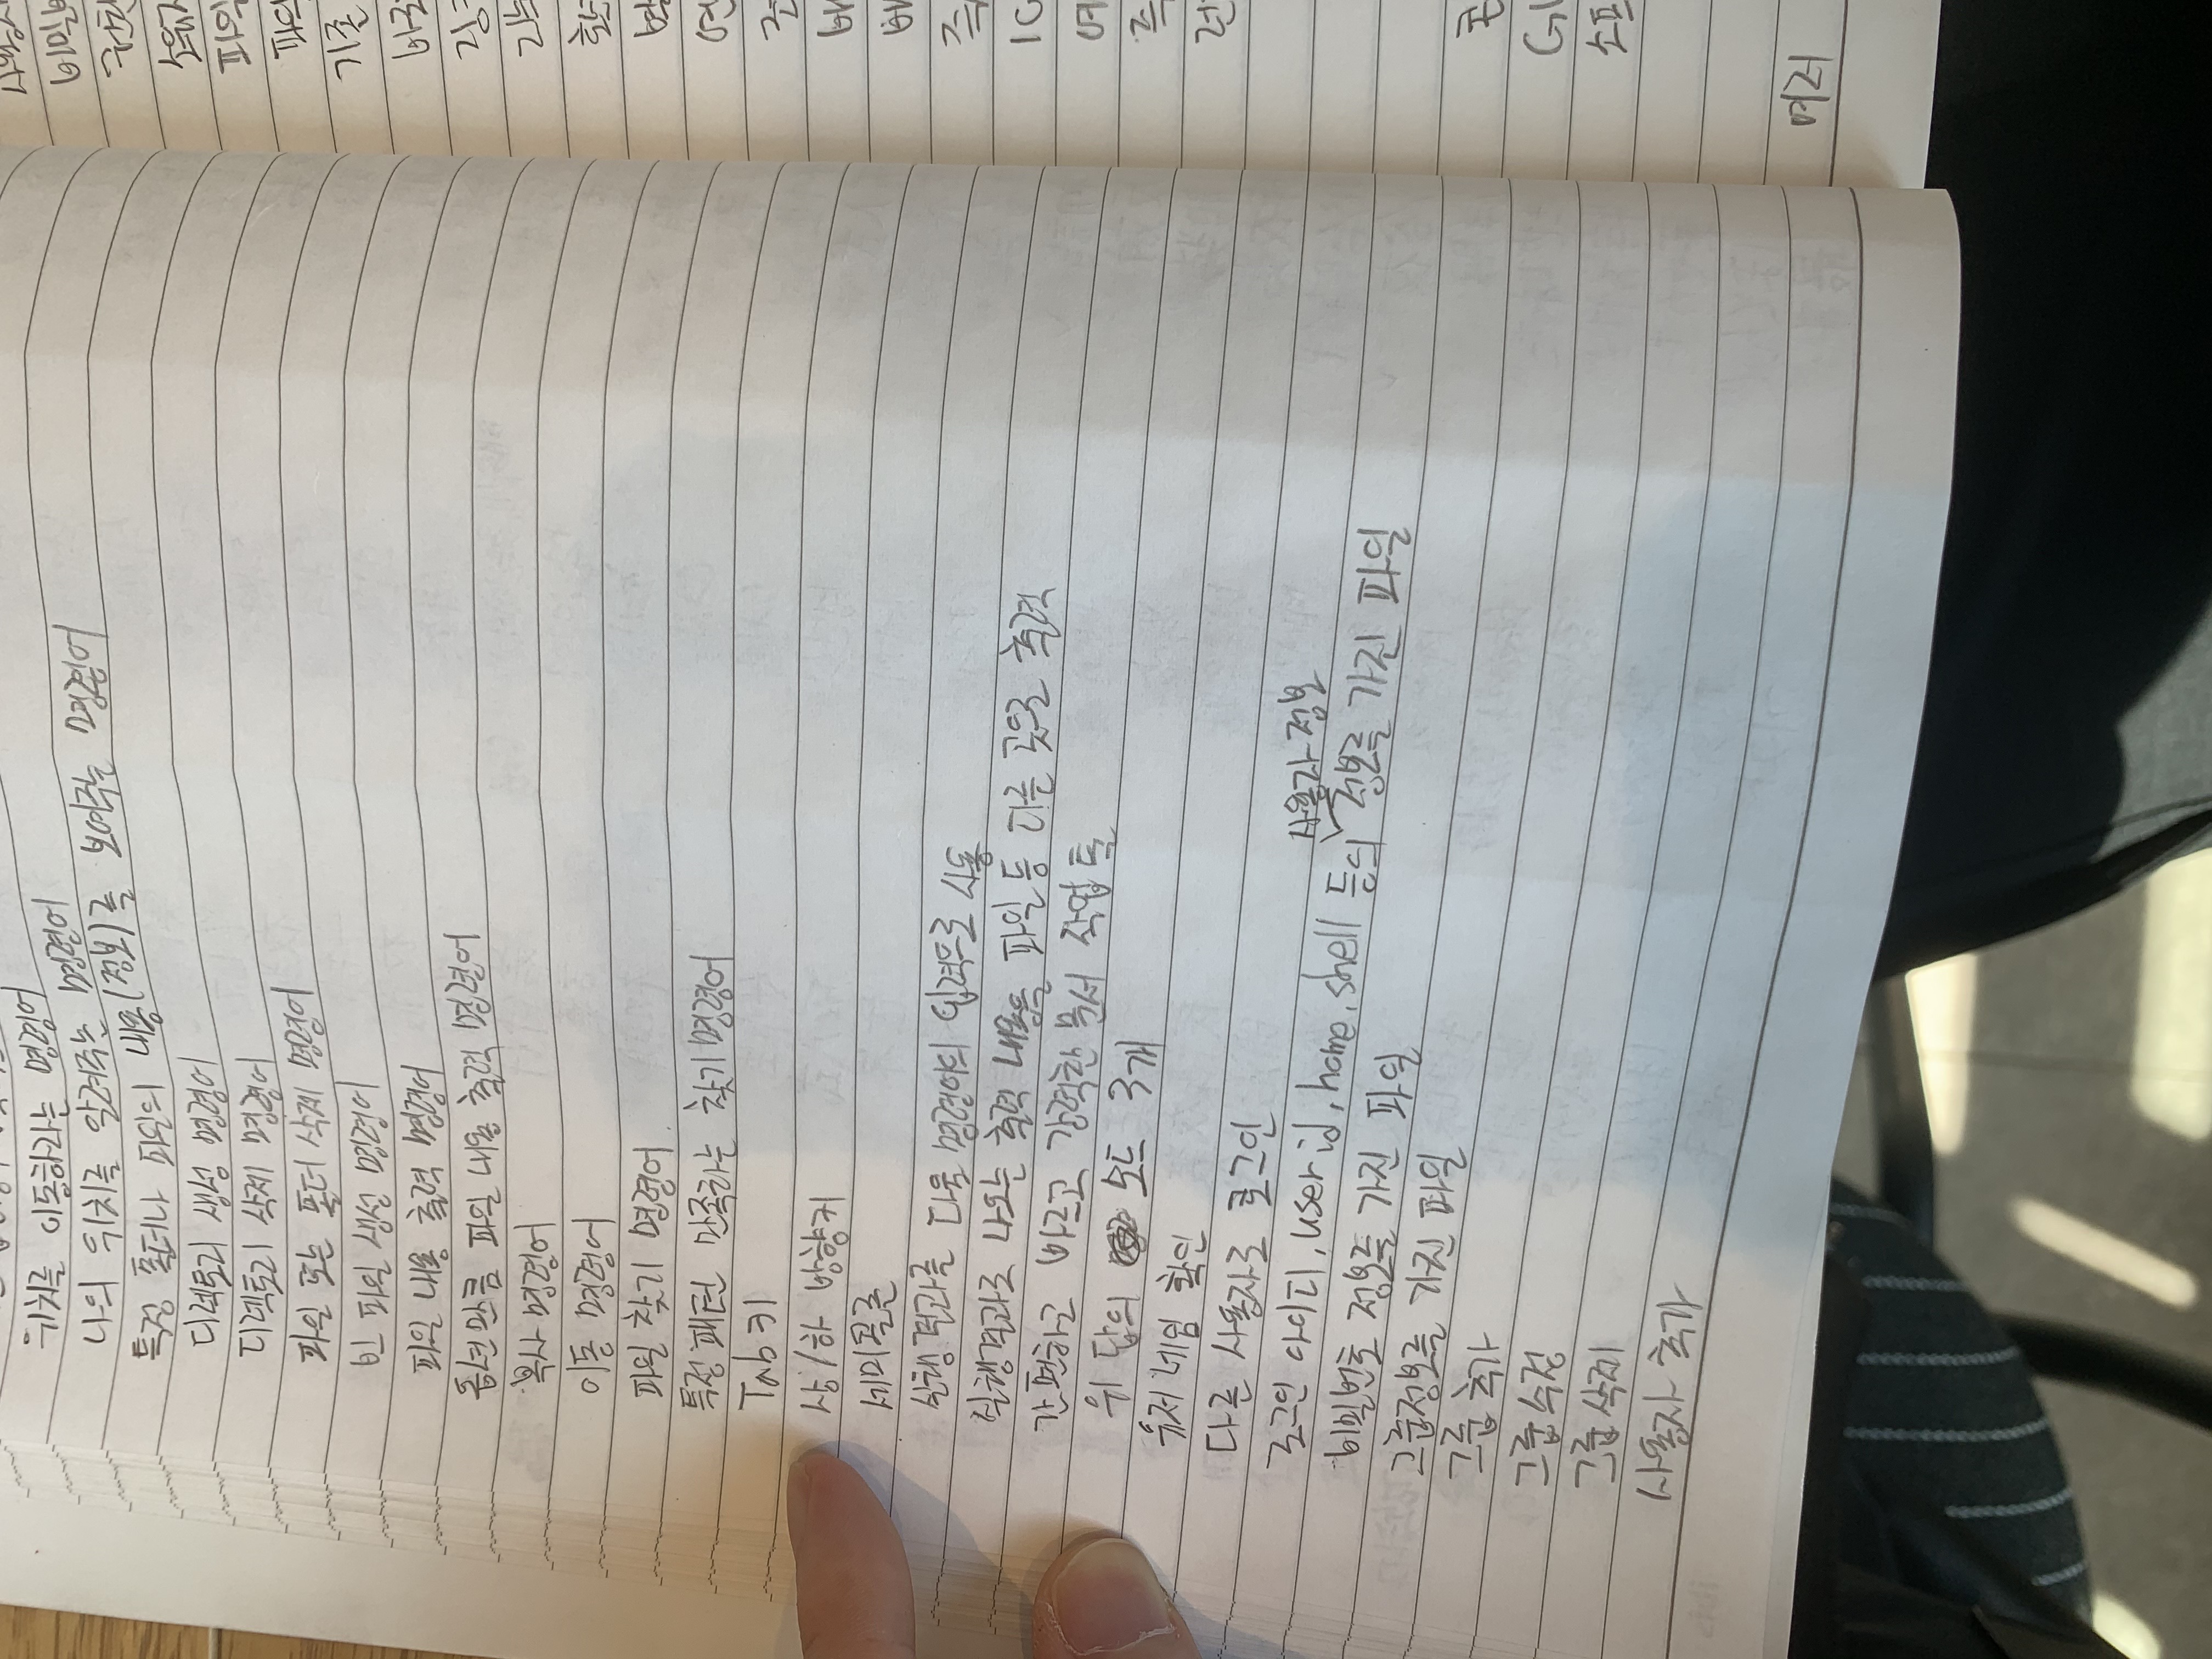 위치를 이동하라는 명령어
나의 위치를 알려주는 명령어
특정 폴더나 파일의 내용(정보)를 보여주는 명령어
디렉토리 생성 명령어
디렉토리 삭제 명령어
파일 또는 폴더 삭제 명령어
빈 파일 생성 명령어
파일 내용 출력 명령어
옵션만큼 파일 내용 출력 명령어
복사 명령어
이동 명령어
파일 찾기 명령어
특정패턴 만족하는 찾기명령어
Tab키
상/하 방향키
세미콜론
실행결과를 다음 명령어의 입력으로 사용
실행결과로 나오는 출력 내용을 파일 등 다른 곳으로 출력
간편하고 빠르고 강력한 문서 작업 툴
위 답의 모드 3개
유저네임 확인
다른 사용자로 로그인
사용자 정보
로그인 아이디, user id, home, shell 등의 정보를 가진 파일
비밀번호 정보를 가진 파일
그룹정보를 가진 파일
그룹 추가
그룹 수정
그룹 삭제
사용자 추가
비밀
소유자
파일
기존
링크
여러